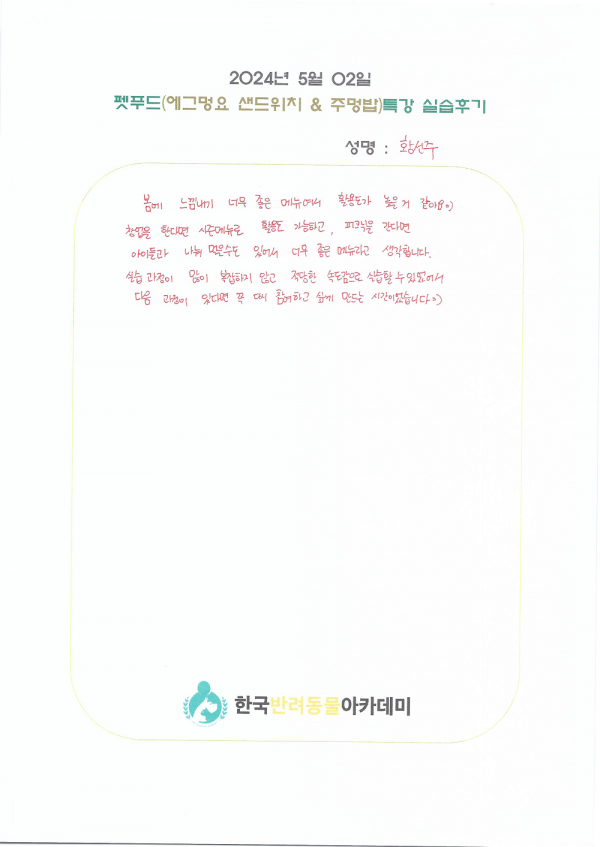 2024년 5월 02일
펫푸드(에그멍요 샌드위치 & 주멍밥)특강 실습후기
성명 : 황선주
봄에 느낌내기 너무 좋은 메뉴여서 활용도가 높을거 같아요:)
창업을 한다면 시즌메뉴로 활용도 가능하고, 피크닉을 간다면
아이들과 나눠 먹을수도 있어서 너무 좋은 메뉴라고 생각합니다.
실습 과정이 많이 복잡하지 않고 적당한 속도감으로 실습할 수 있었어서
다음 과정이 있다면 꼭 다시 참여하고 싶게 만드는 시간이었습니다:)
한국반려동물아카데미